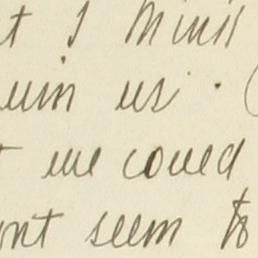 t I think
us. (
t we could
ont seem to